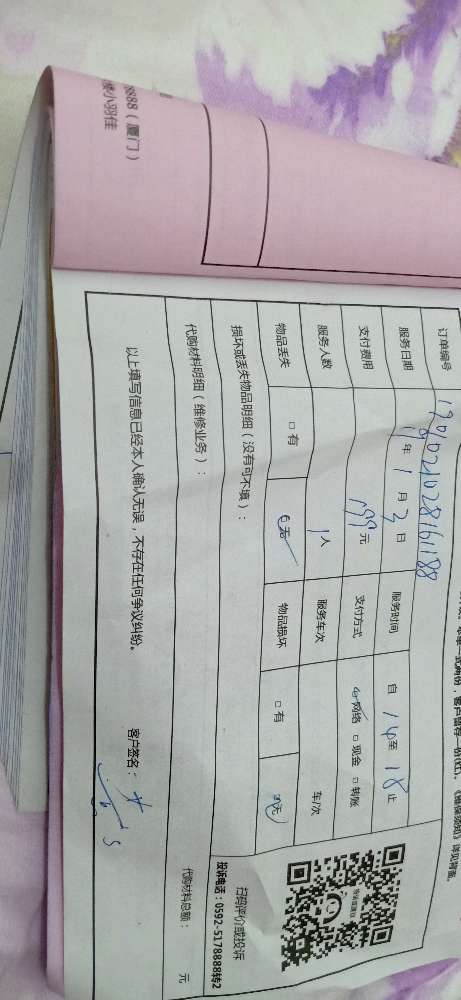 8888（厦门）
楼小羽佳
客户留存一份(红)。《维保须知》详见背面。
订单编号 190102102816188
服务日期 19年1月3日 服务时间 自14至18止
支付费用 199元 支付方式 网络 □ 现金 □ 转账
服务人数 1人 服务车次 车/次
物品丢失 □ 有 无 物品损坏 □ 有 无
损坏或丢失物品明细（没有可不填）：
代购材料明细（维修业务）：
代购材料总额： 元
扫码评价或投诉
投诉电话：0592-5178888转2
以上填写信息已经本人确认无误，不存在任何争议纠纷。 客户签名：